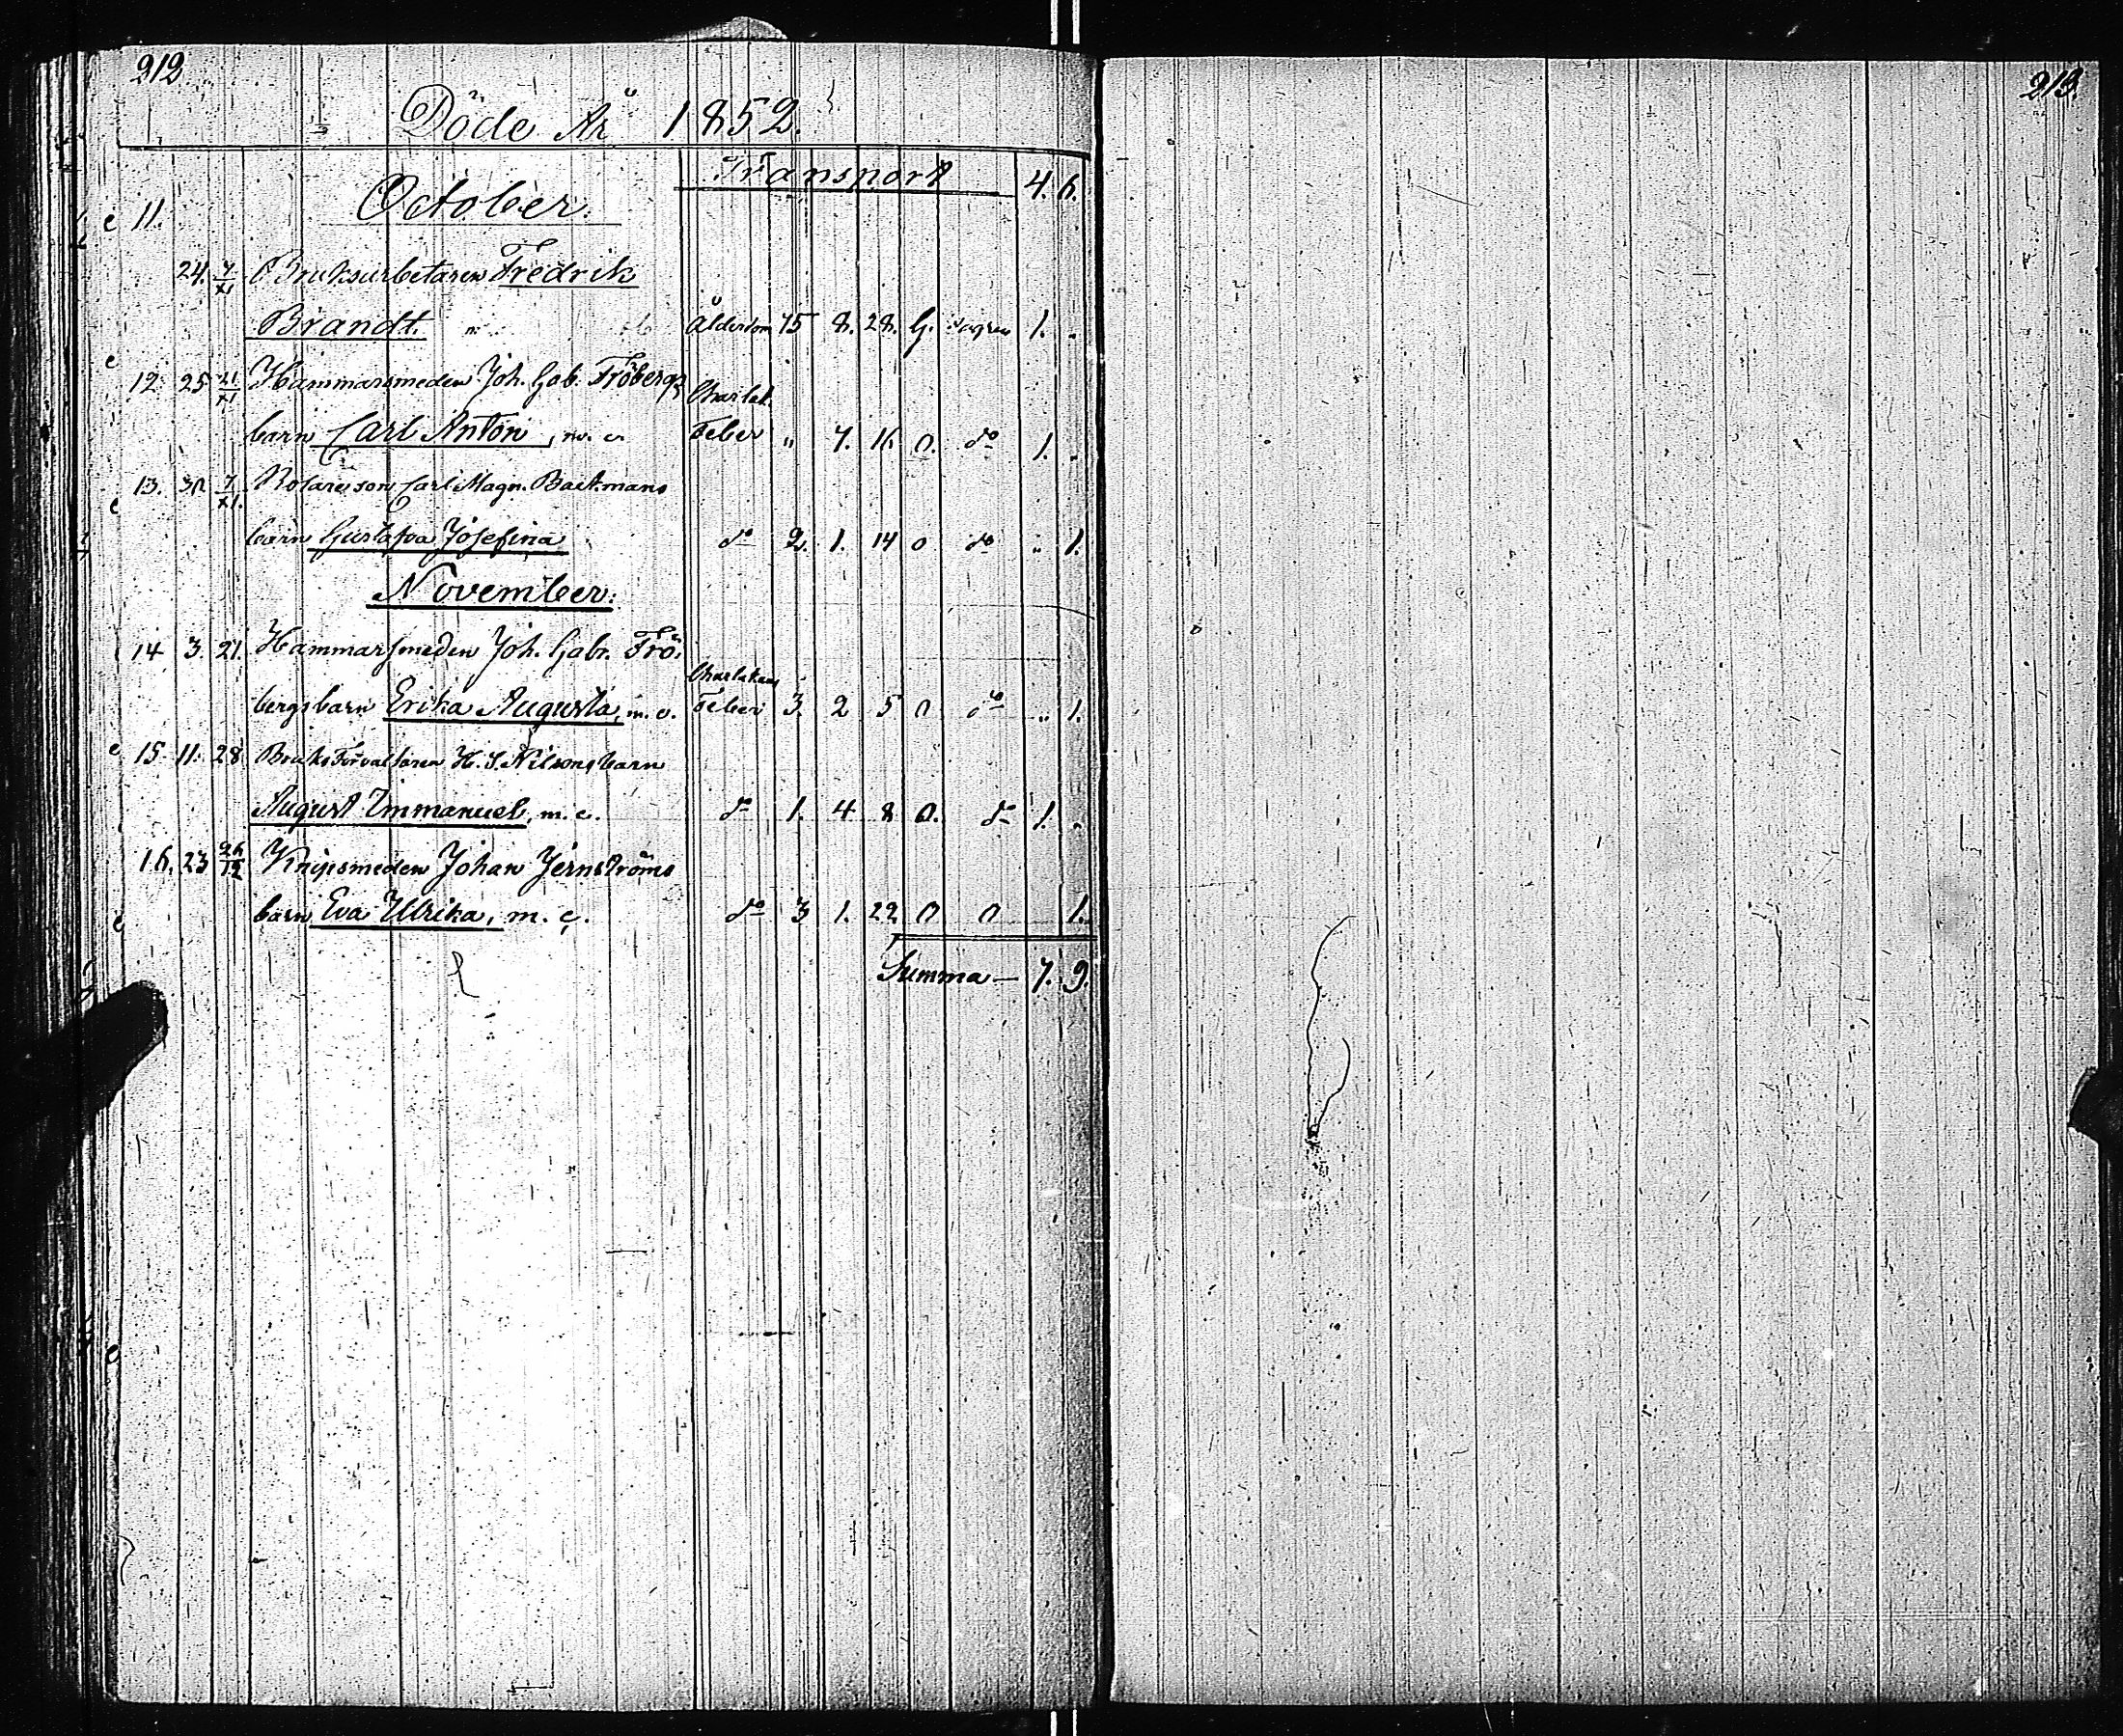 212
213.
Döde År 1852.
Transport 4. 6.
11. October.
24. 7/XI Bruksarbetaren Fredrik
Brandt. Ålderdom 75 8. 28. G. 1. "
12. 25 21/XI Hammarsmeden Joh. Gab. Fröbergs
Charlak.
barn Carl Anton, m. c. Feber " 7. 16 O. do 1. "
13. 30 7/XI. Carl Magn. Backmans
barn Gustafva Josefina do 2. 1. 14 O do " 1.
November.
14 3. 21. Hammarsmeden Joh. Gabr. Frö-
Charlakans
bergs barn Erika Augusta, m. c. Feber 3. 2 5 O do " 1.
15. 11. 28 Bruks Förvaltaren H. S. Nilsons barn
August Immanuel, m. c. do 1. 4 8 O. do 1. "
16. 23 26/12 Knipsmeden Johan Jernströms
barn Eva Ulrika, m. c. do 3 1. 22 O O 1.
Summa — 7. 9.